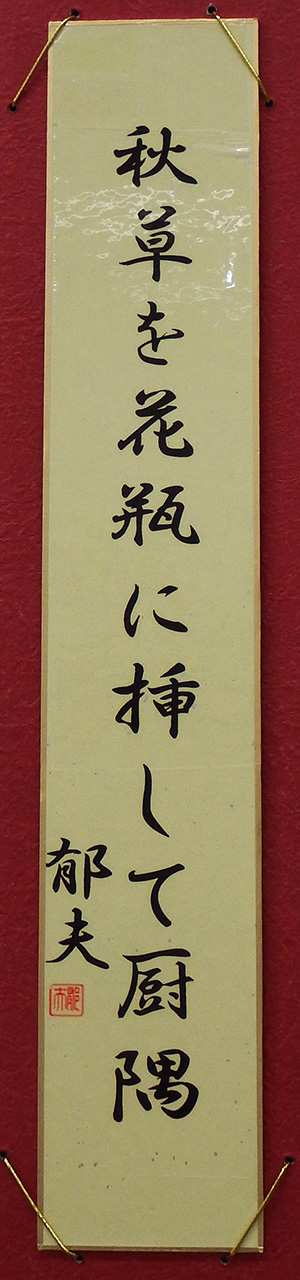 秋草を花瓶に挿して厨隅
郁夫
郁夫